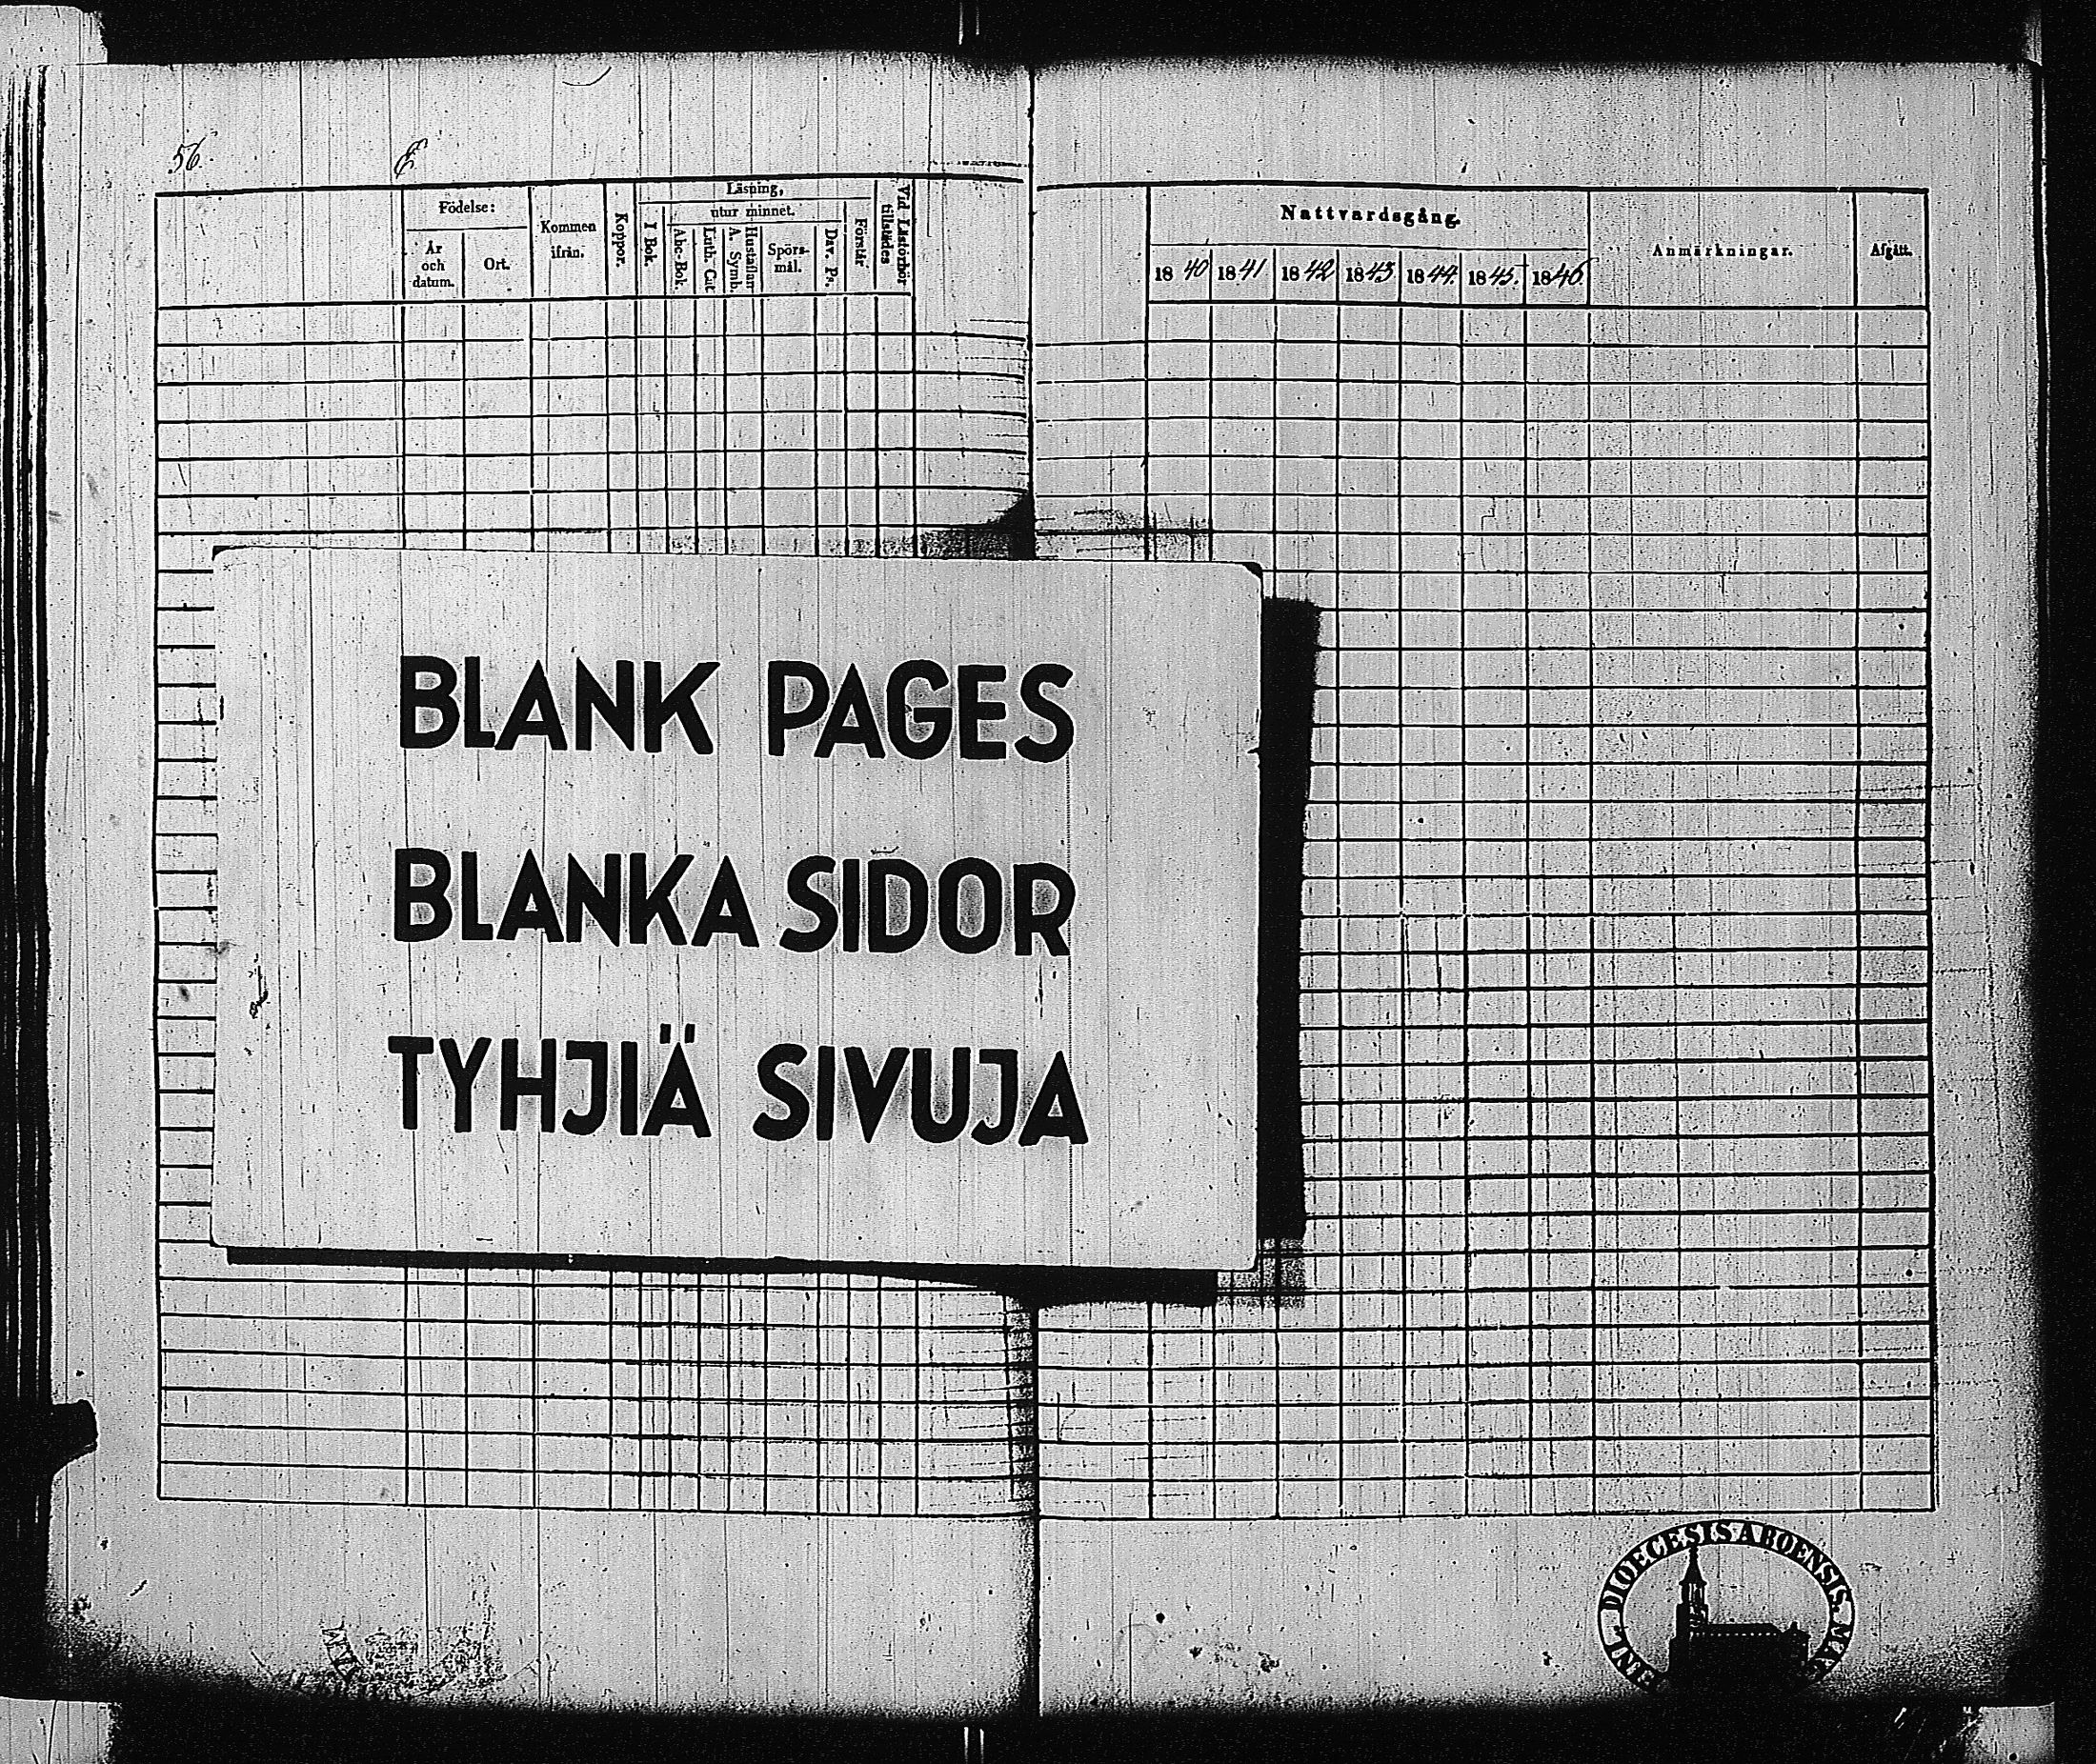 56.
E
Födelse:
År och datum.
Ort.
Kommen ifrån.
Koppor.
Läsning,
utur minnet.
I Bok.
Abc-Bok.
Luth. Cat
A. Symb.
Hustaflur
Spörs-mål.
Dav. Ps.
Förstår
Vid Läsförhör tillstädes
Nattvardsgång.
1840 1841 1842 1843 1844. 1845. 1846.
Anmärkningar.
Afgått.
BLANK PAGES
BLANKA SIDOR
TYHJIÄ SIVUJA
DIOECESIS ABOENSIS.